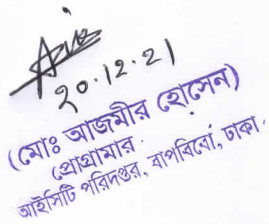 ২০.১২.২১
(মোঃ আজমীর হোসেন)
প্রোগ্রামার
আইসিটি পরিদপ্তর, বাপবিবো, ঢাকা।